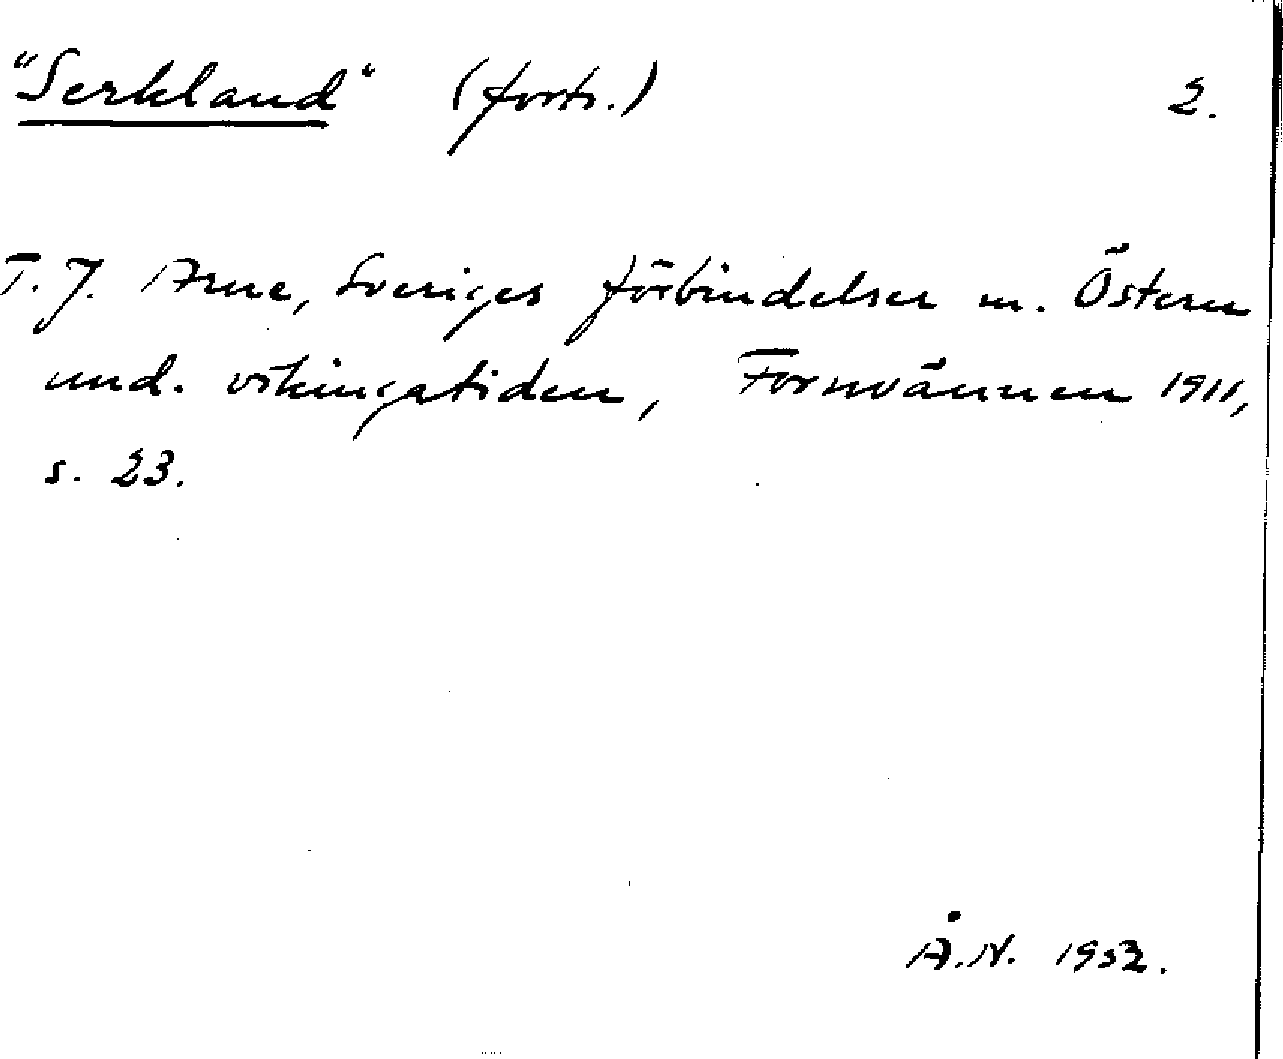 "Serkland" (forts.) 2.
T. J. Arne, Sveriges förbindelser m. Östern
und. vikingatiden, Fornvännen 1911,
s. 23.
Å.N. 1932.